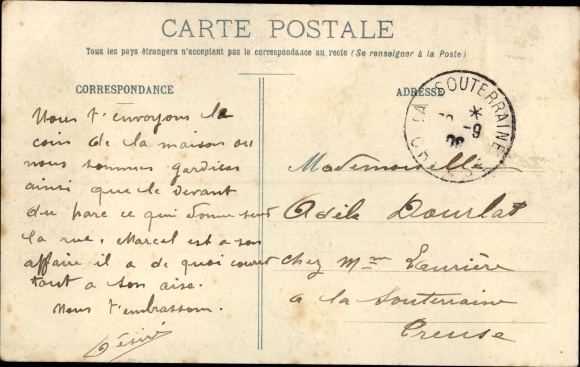 CARTE POSTALE
Tous les pays étrangers n'acceptent pas la correspondance au recto (Se renseigner à la Poste)
CORRESPONDANCE
ADRESSE
LA SOUTERRAINE
Nous t'envoyons le
coin de la maison ou
nous sommes gardies
ainsi que le devant
du parc ce qui donne sur
la rue. Marcel est a son
affaire il a de quoi courir
tout a son aise.
Nous t'embrassons.
Désiré
Mademoiselle
Adèle Dourlat
chez Mme Laurière
a la Souterraine
Creuse